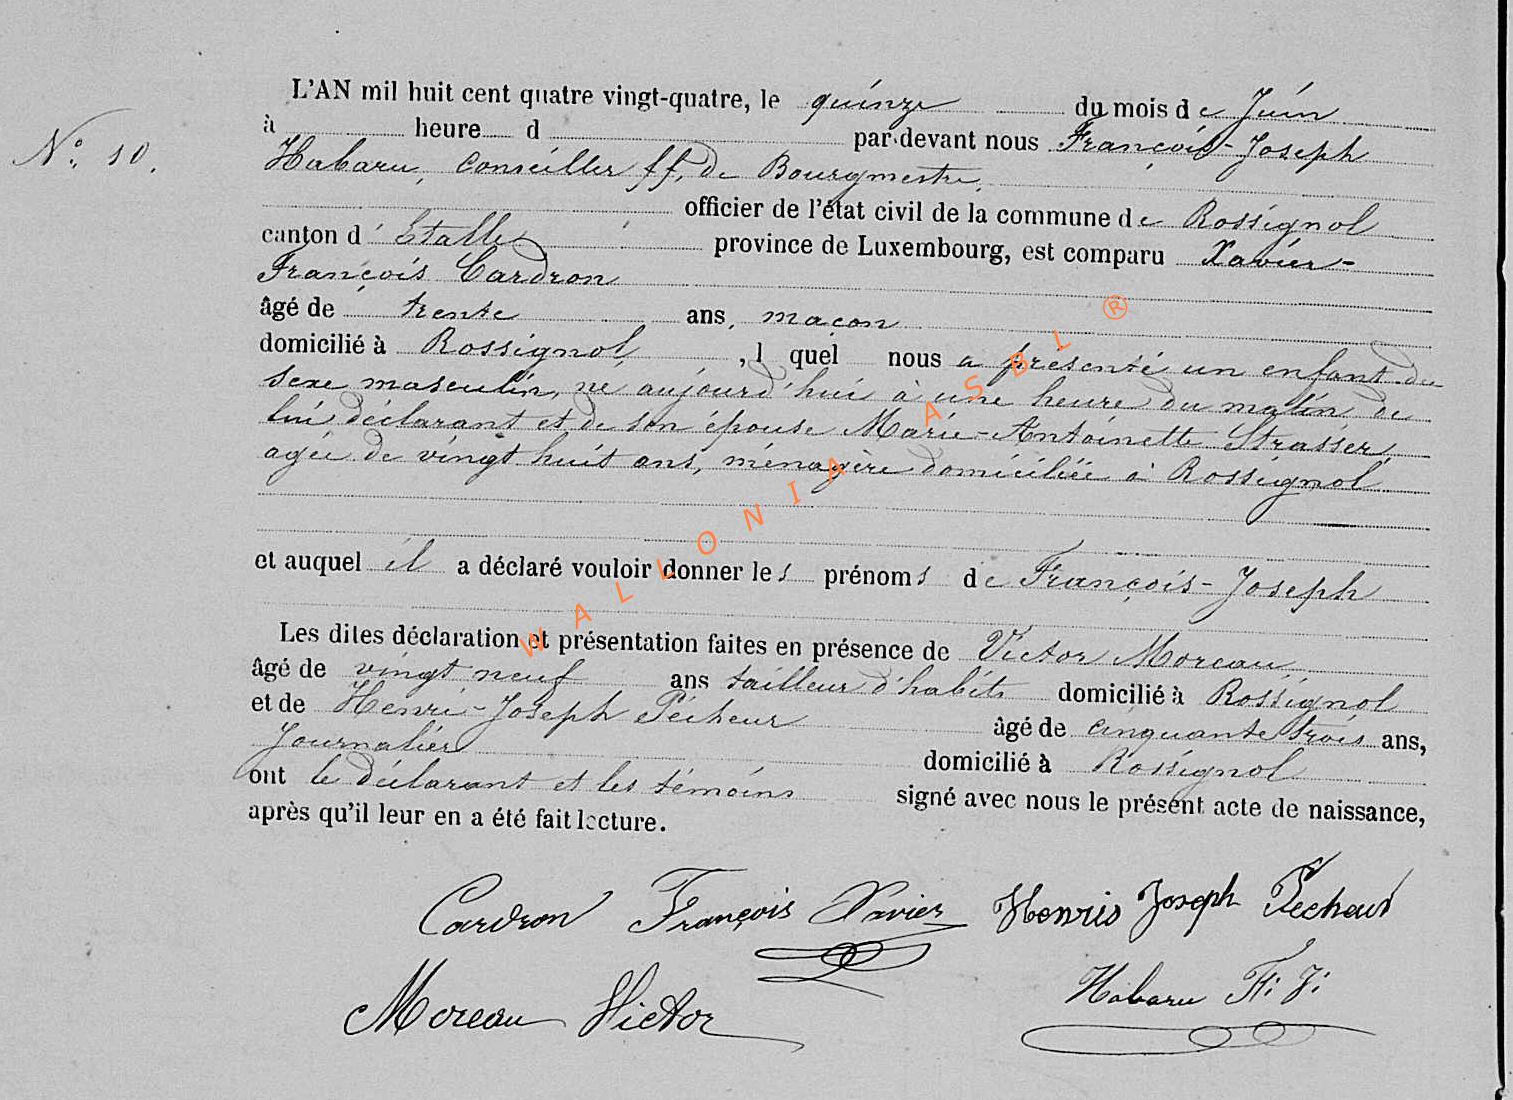 L'AN mil huit cent quatre vingt-quatre, le quinze du mois de Juin
N° 10.
à heure d par devant nous François-Joseph
Habaru, Conseiller ff. de Bourgmestre,
officier de l'état civil de la commune de Rossignol
canton d'Etalle province de Luxembourg, est comparu Xavier-
François Cardron
âgé de trente ans, maçon
domicilié à Rossignol, l quel nous a présenté un enfant du
sexe masculin, né aujourd'hui à une heure du matin de
lui déclarant et de son épouse Marie-Antoinette Strasser,
agée de vingt huit ans, ménagère domiciliée à Rossignol
et auquel il a déclaré vouloir donner les prénoms de François-Joseph
Les dites déclaration et présentation faites en présence de Victor Moreau
âgé de vingt neuf ans tailleur d'habits domicilié à Rossignol
et de Henri-Joseph Pécheur âgé de cinquante trois ans,
Journalier domicilié à Rossignol
ont le déclarant et les témoins signé avec nous le présent acte de naissance,
après qu'il leur en a été fait lecture.
Cardron François Xavier Henris Joseph Pecheur
Moreau Victor Habaru F. J.
WALLONIA ASBL ®